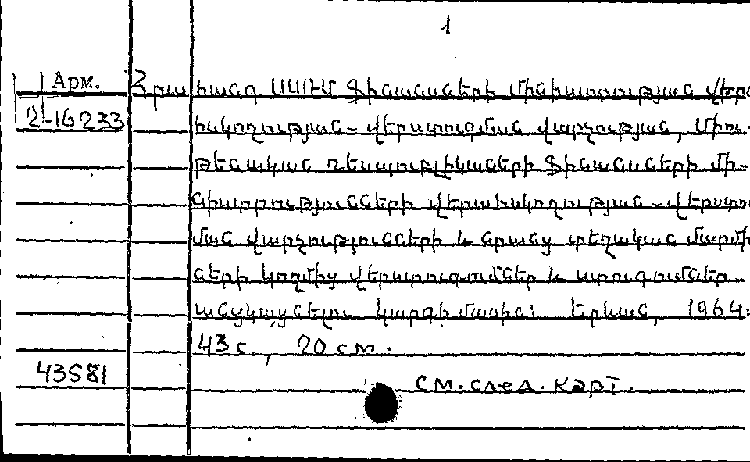 1
Арм. Հրահանգ ՍՍՌՄ Ֆինանսների մինիստրության վերա
2-16233 հսկողության-վերստուգման վարչության, Միու-
թենական ռեսպուբլիկաների ֆինանսների մի-
նիստրությունների վերահսկողության-վերստու
ման վարչությունների և նրանց տեղական մարմի
ների կողմից վերստուգումներ և ստուգումներ
անցկացնելու կարգի մասին։ Երևան, 1964.
43 с., 20 см.
43581
см. след. карт.